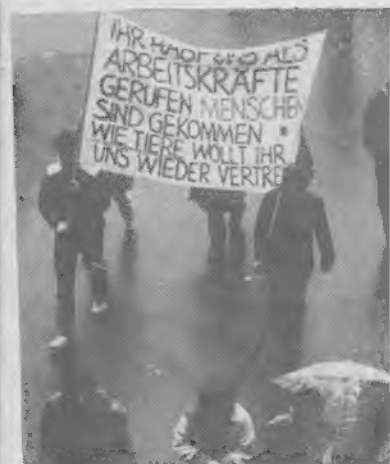 IHR HABT UNS ALS
ARBEITSKRÄFTE
GERUFEN MENSCHEN
SIND GEKOMMEN
WIE TIERE WOLLT IHR
UNS WIEDER VERTREI